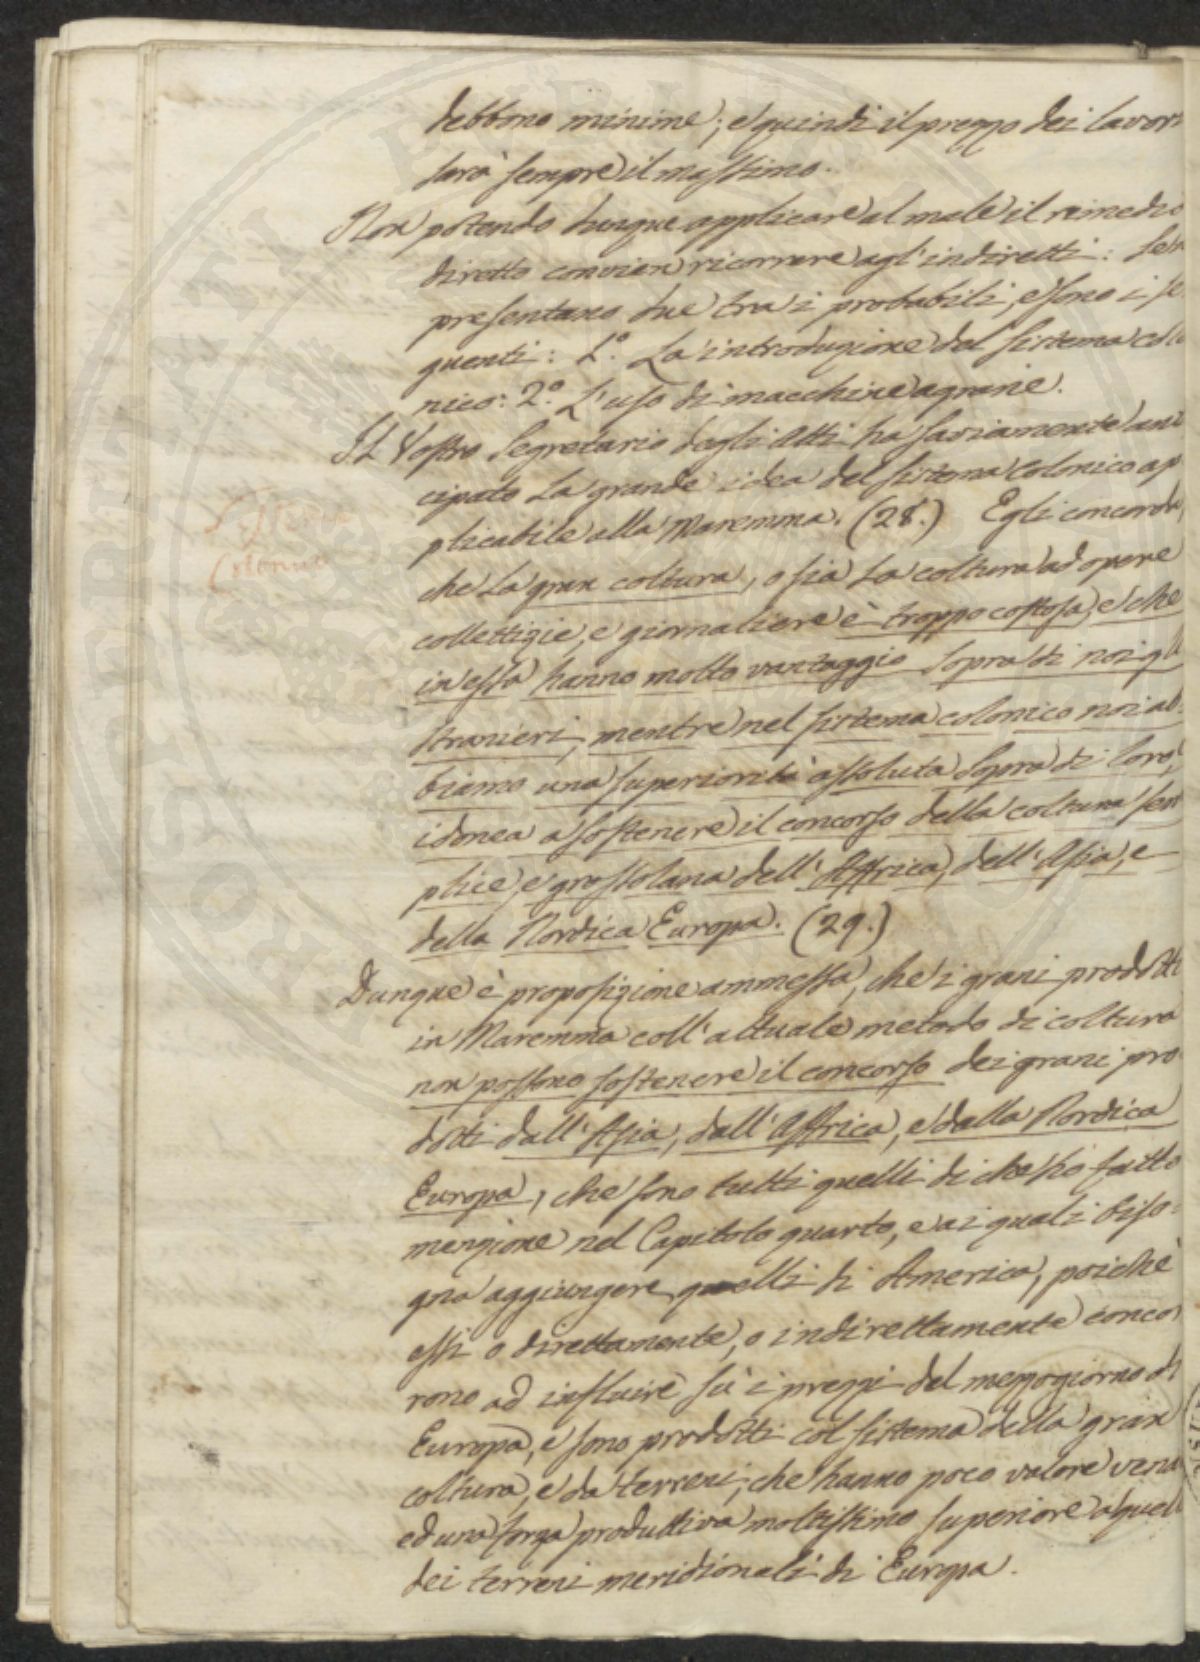 debbono minime; e quindi il prezzo dei lavori
sarà sempre il massimo.
Non potendo dunque applicare al male il rimedio
diretto convien ricorrere agl'indiretti: Se ne
presentano due tra i probabili, e sono i se-
guenti: 1.° La introduzione del sistema colo
nico: 2.° L'uso di macchine agrarie.
Il Vostro Segretario degli Atti ha saviamente anti
cipato La grande idea del sistema Colonico ap
plicabile alla Maremma. (28.) Egli concorda,
Sistema
Colonico
che La gran coltura, o sia La coltura ad opere
collettizie, e giornaliere è troppo costosa, e che
in essa hanno molto vantaggio sopra di noi gli
stranieri, mentre nel sistema colonico noi ab-
biamo una superiorità assoluta sopra di loro,
idonea a sostenere il concorso della coltura sem
plice, e grossolana dell'Affrica, dell'Asia, e
della Nordica Europa. (29.)
Dunque è proposizione ammessa, che i grani prodotti
in Maremma coll'attuale metodo di coltura
non possono sostenere il concorso dei grani pro
dotti dall'Asia, dall'Affrica, e dalla Nordica
Europa, che sono tutti quelli di che ho fatto
menzione nel Capitolo quarto, e ai quali biso-
gna aggiungere quelli di America, poichè
essi o direttamente, o indirettamente concor
rono ad influire sù i prezzi del mezzogiorno di
Europa, e sono prodotti col sistema della gran
coltura, e da terreni, che hanno poco valore venale
ed una forza produttiva moltissimo superiore a quella
dei terreni meridionali di Europa.